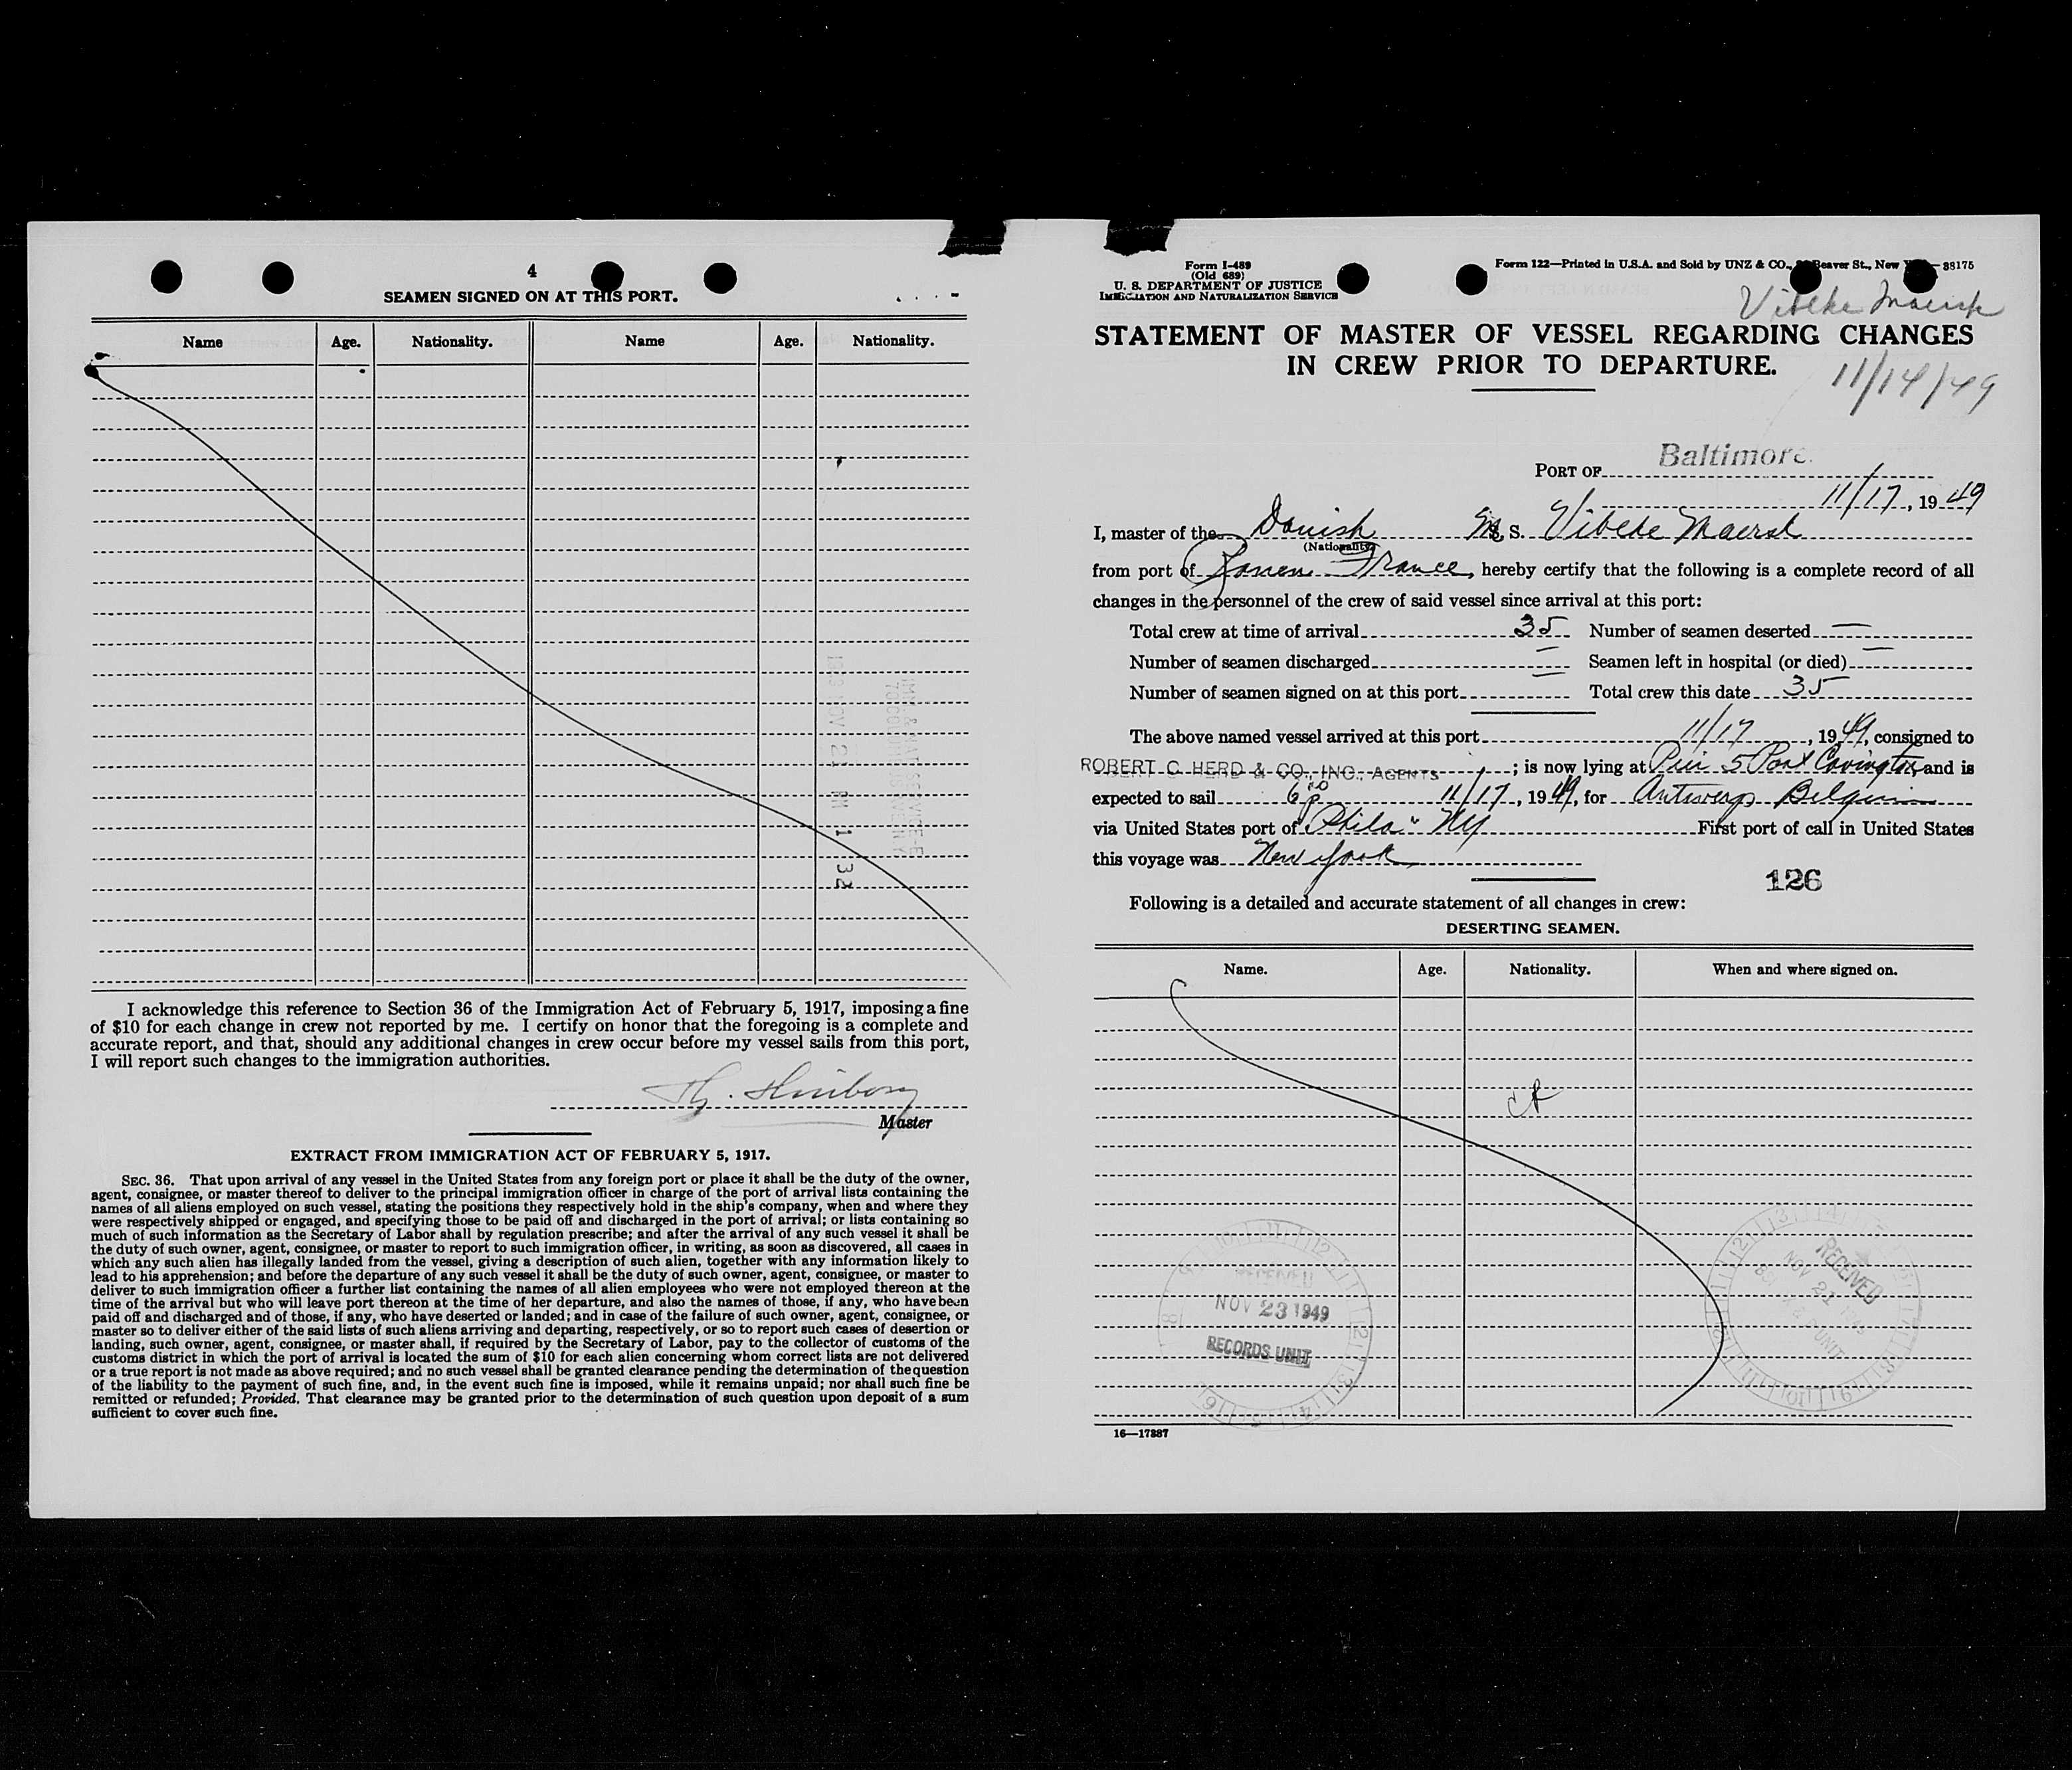 4
SEAMEN SIGNED ON AT THIS PORT.
Name Age. Nationality. Name Age. Nationality.
I acknowledge this reference to Section 36 of the Immigration Act of February 5, 1917, imposing a fine
of $10 for each change in crew not reported by me. I certify on honor that the foregoing is a complete and
accurate report, and that, should any additional changes in crew occur before my vessel sails from this port,
I will report such changes to the immigration authorities.
Master
EXTRACT FROM IMMIGRATION ACT OF FEBRUARY 5, 1917.
SEC. 36. That upon arrival of any vessel in the United States from any foreign port or place it shall be the duty of the owner,
agent, consignee, or master thereof to deliver to the principal immigration officer in charge of the port of arrival lists containing the
names of all aliens employed on such vessel, stating the positions they respectively hold in the ship's company, when and where they
were respectively shipped or engaged, and specifying those to be paid off and discharged in the port of arrival; or lists containing so
much of such information as the Secretary of Labor shall by regulation prescribe; and after the arrival of any such vessel it shall be
the duty of such owner, agent, consignee, or master to report to such immigration officer, in writing, as soon as discovered, all cases in
which any such alien has illegally landed from the vessel, giving a description of such alien, together with any information likely to
lead to his apprehension; and before the departure of any such vessel it shall be the duty of such owner, agent, consignee, or master to
deliver to such immigration officer a further list containing the names of all alien employees who were not employed thereon at the
time of the arrival but who will leave port thereon at the time of her departure, and also the names of those, if any, who have been
paid off and discharged and of those, if any, who have deserted or landed; and in case of the failure of such owner, agent, consignee, or
master so to deliver either of the said lists of such aliens arriving and departing, respectively, or so to report such cases of desertion or
landing, such owner, agent, consignee, or master shall, if required by the Secretary of Labor, pay to the collector of customs of the
customs district in which the port of arrival is located the sum of $10 for each alien concerning whom correct lists are not delivered
or a true report is not made as above required; and no such vessel shall be granted clearance pending the determination of the question
of the liability to the payment of such fine, and, in the event such fine is imposed, while it remains unpaid; nor shall such fine be
remitted or refunded; Provided, That clearance may be granted prior to the determination of such question upon deposit of a sum
sufficient to cover such fine.
Form I-489
(Old 689)
U. S. DEPARTMENT OF JUSTICE
IMMIGRATION AND NATURALIZATION SERVICE
Form 122—Printed in U.S.A. and Sold by UNZ & CO., Beaver St., New — 38175
Vibeke Maersk
STATEMENT OF MASTER OF VESSEL REGARDING CHANGES
IN CREW PRIOR TO DEPARTURE.
11/14/49
PORT OF Baltimore.
11/17, 1949
I, master of the Danish M. S. Vibeke Maersk
(Nationality)
from port of Rouen France, hereby certify that the following is a complete record of all
changes in the personnel of the crew of said vessel since arrival at this port:
Total crew at time of arrival 35 Number of seamen deserted —
Number of seamen discharged — Seamen left in hospital (or died) —
Number of seamen signed on at this port — Total crew this date 35
The above named vessel arrived at this port 11/17, 1949, consigned to
ROBERT C HERD & CO., INC., AGENTS ; is now lying at Pier 5 Port Covington and is
expected to sail 6 p 11/17, 1949, for Antwerp Belgium
via United States port of Phila NY First port of call in United States
this voyage was New York
126
Following is a detailed and accurate statement of all changes in crew:
DESERTING SEAMEN.
Name. Age. Nationality. When and where signed on.
RECEIVED
NOV 23 1949
RECORDS UNIT
RECEIVED
NOV 21 1949
16—17887